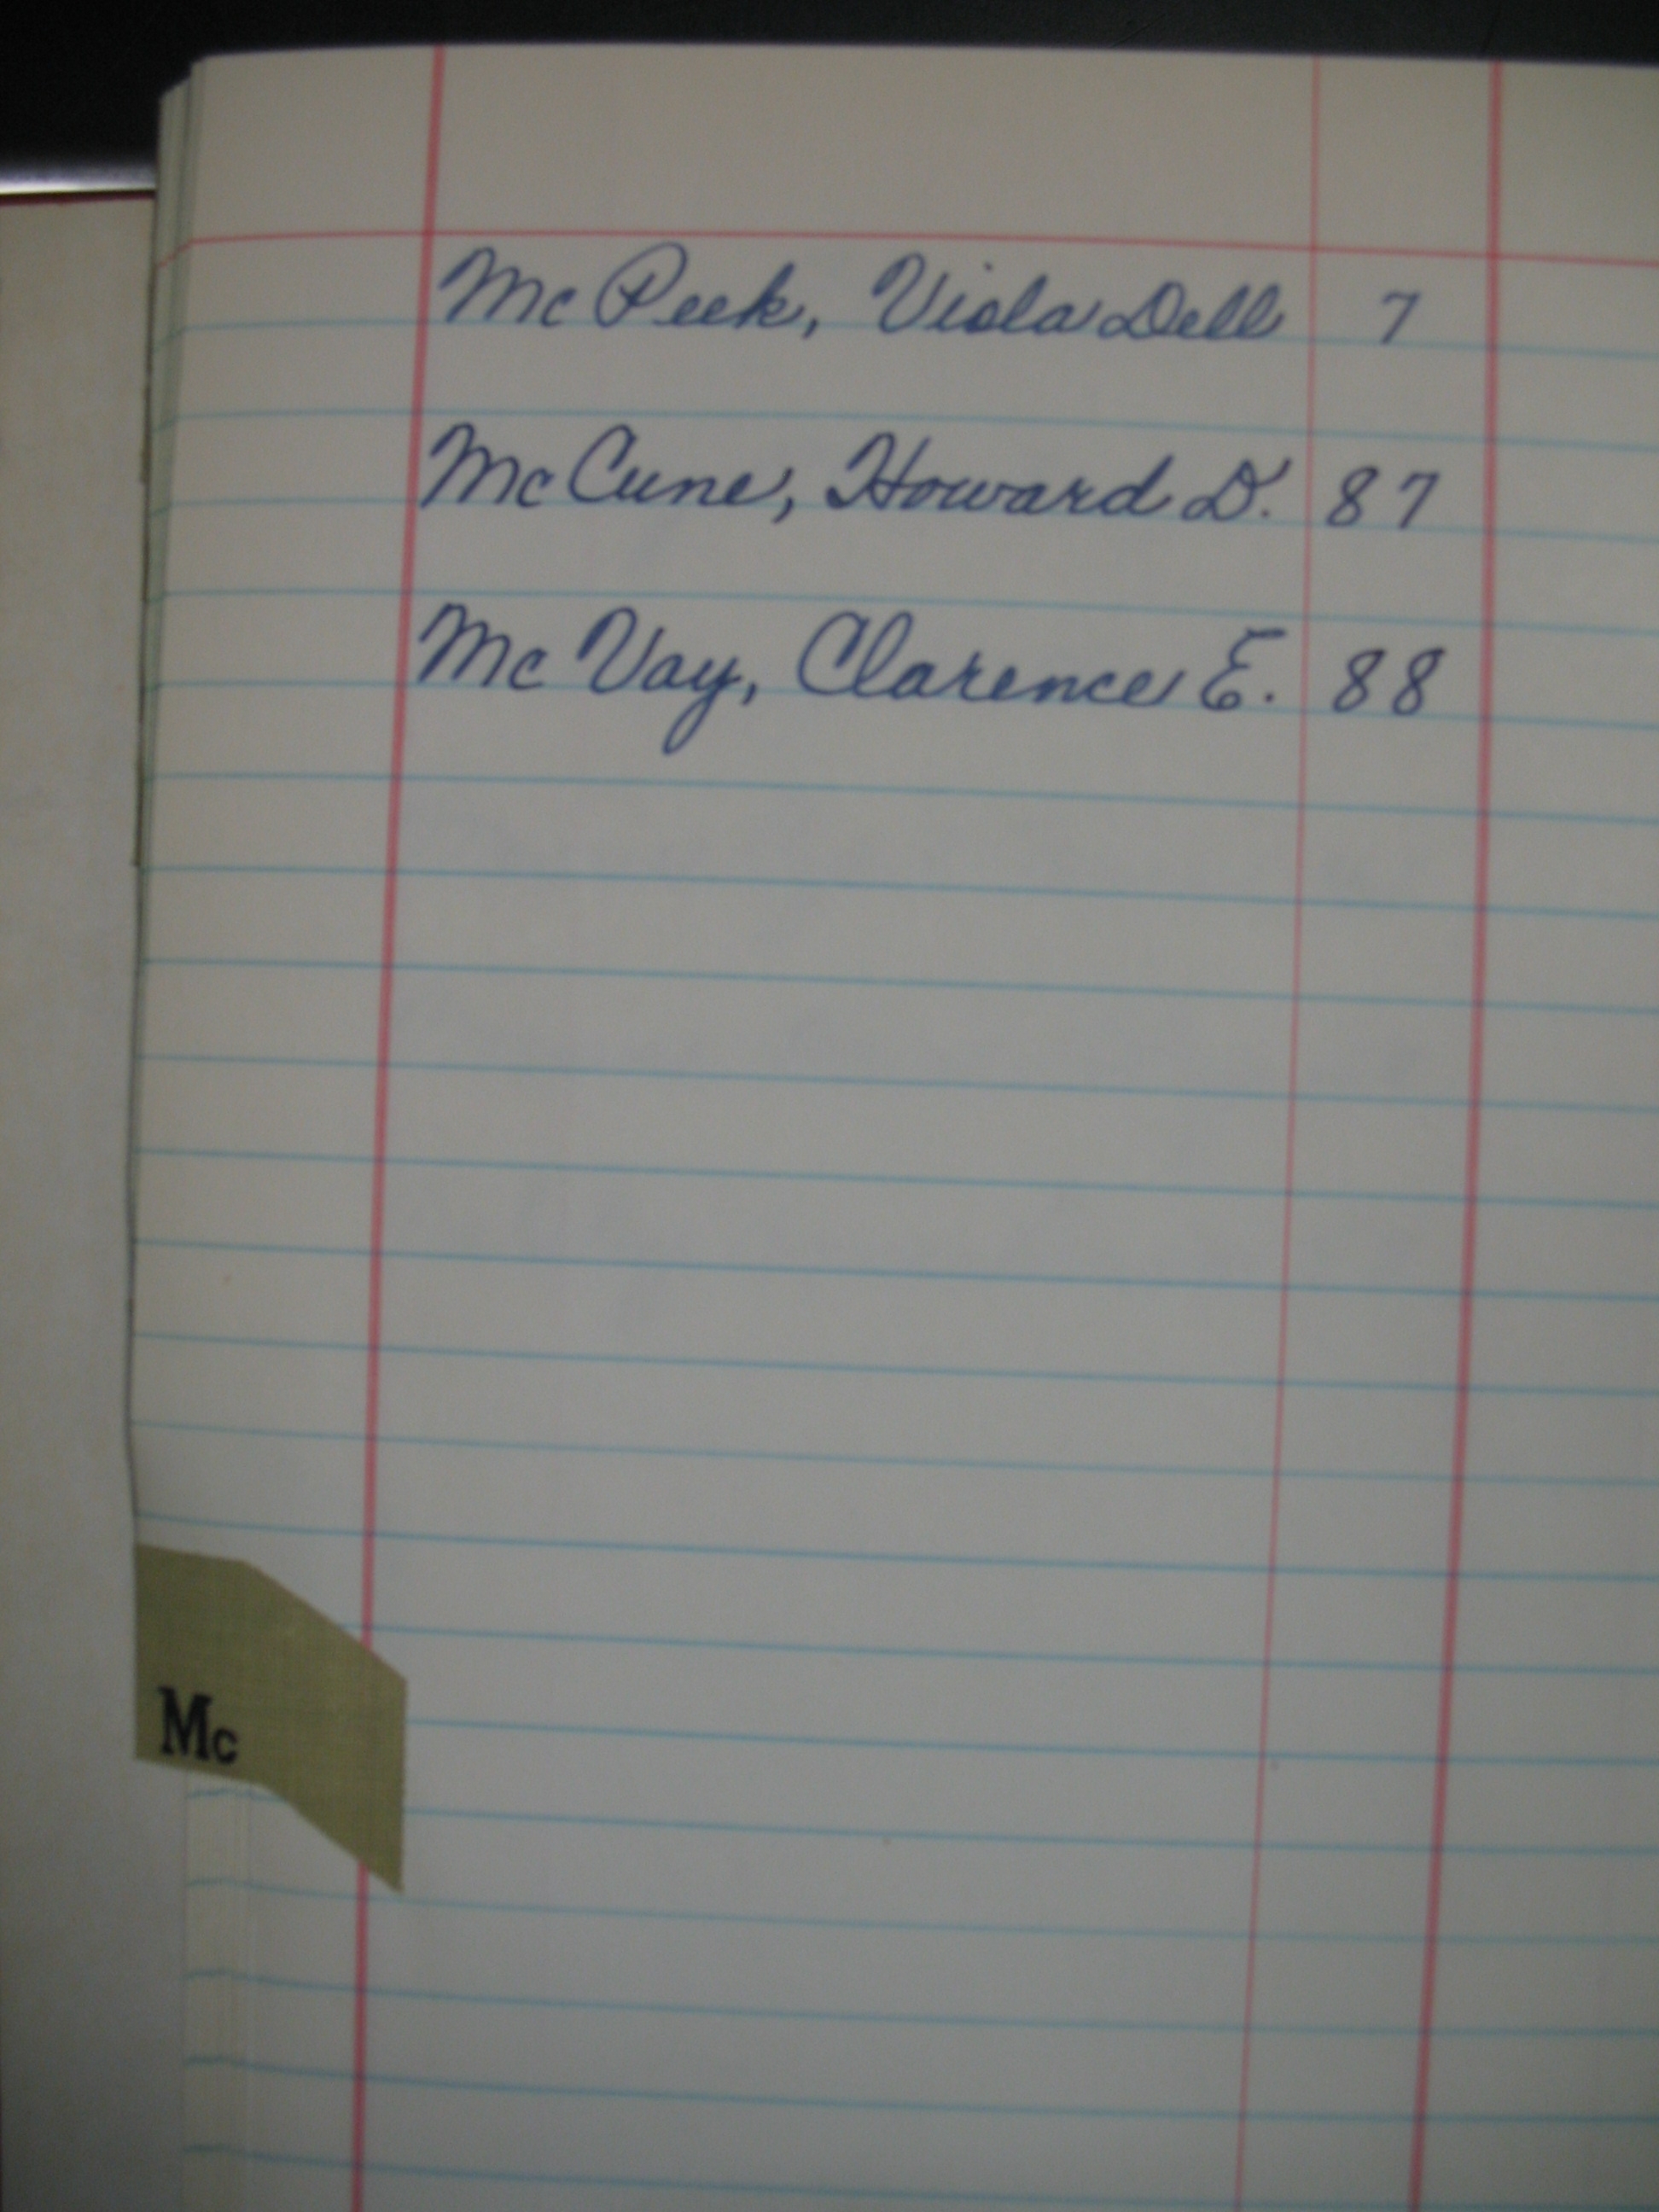 Mc Peek, Viola Dell 7
Mc Cune, Howard D. 87
Mc Vay, Clarence E. 88
Mc